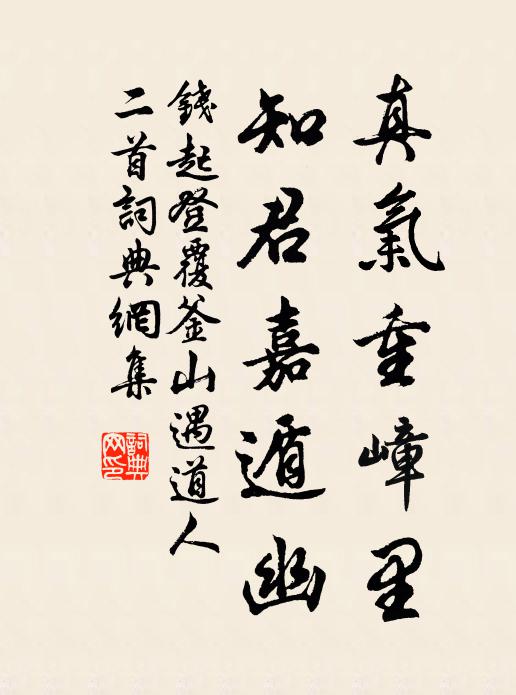 真氣重嶂里
知君嘉遁幽
錢起登覆釜山遇道人
二首詞典網集
詞典網印